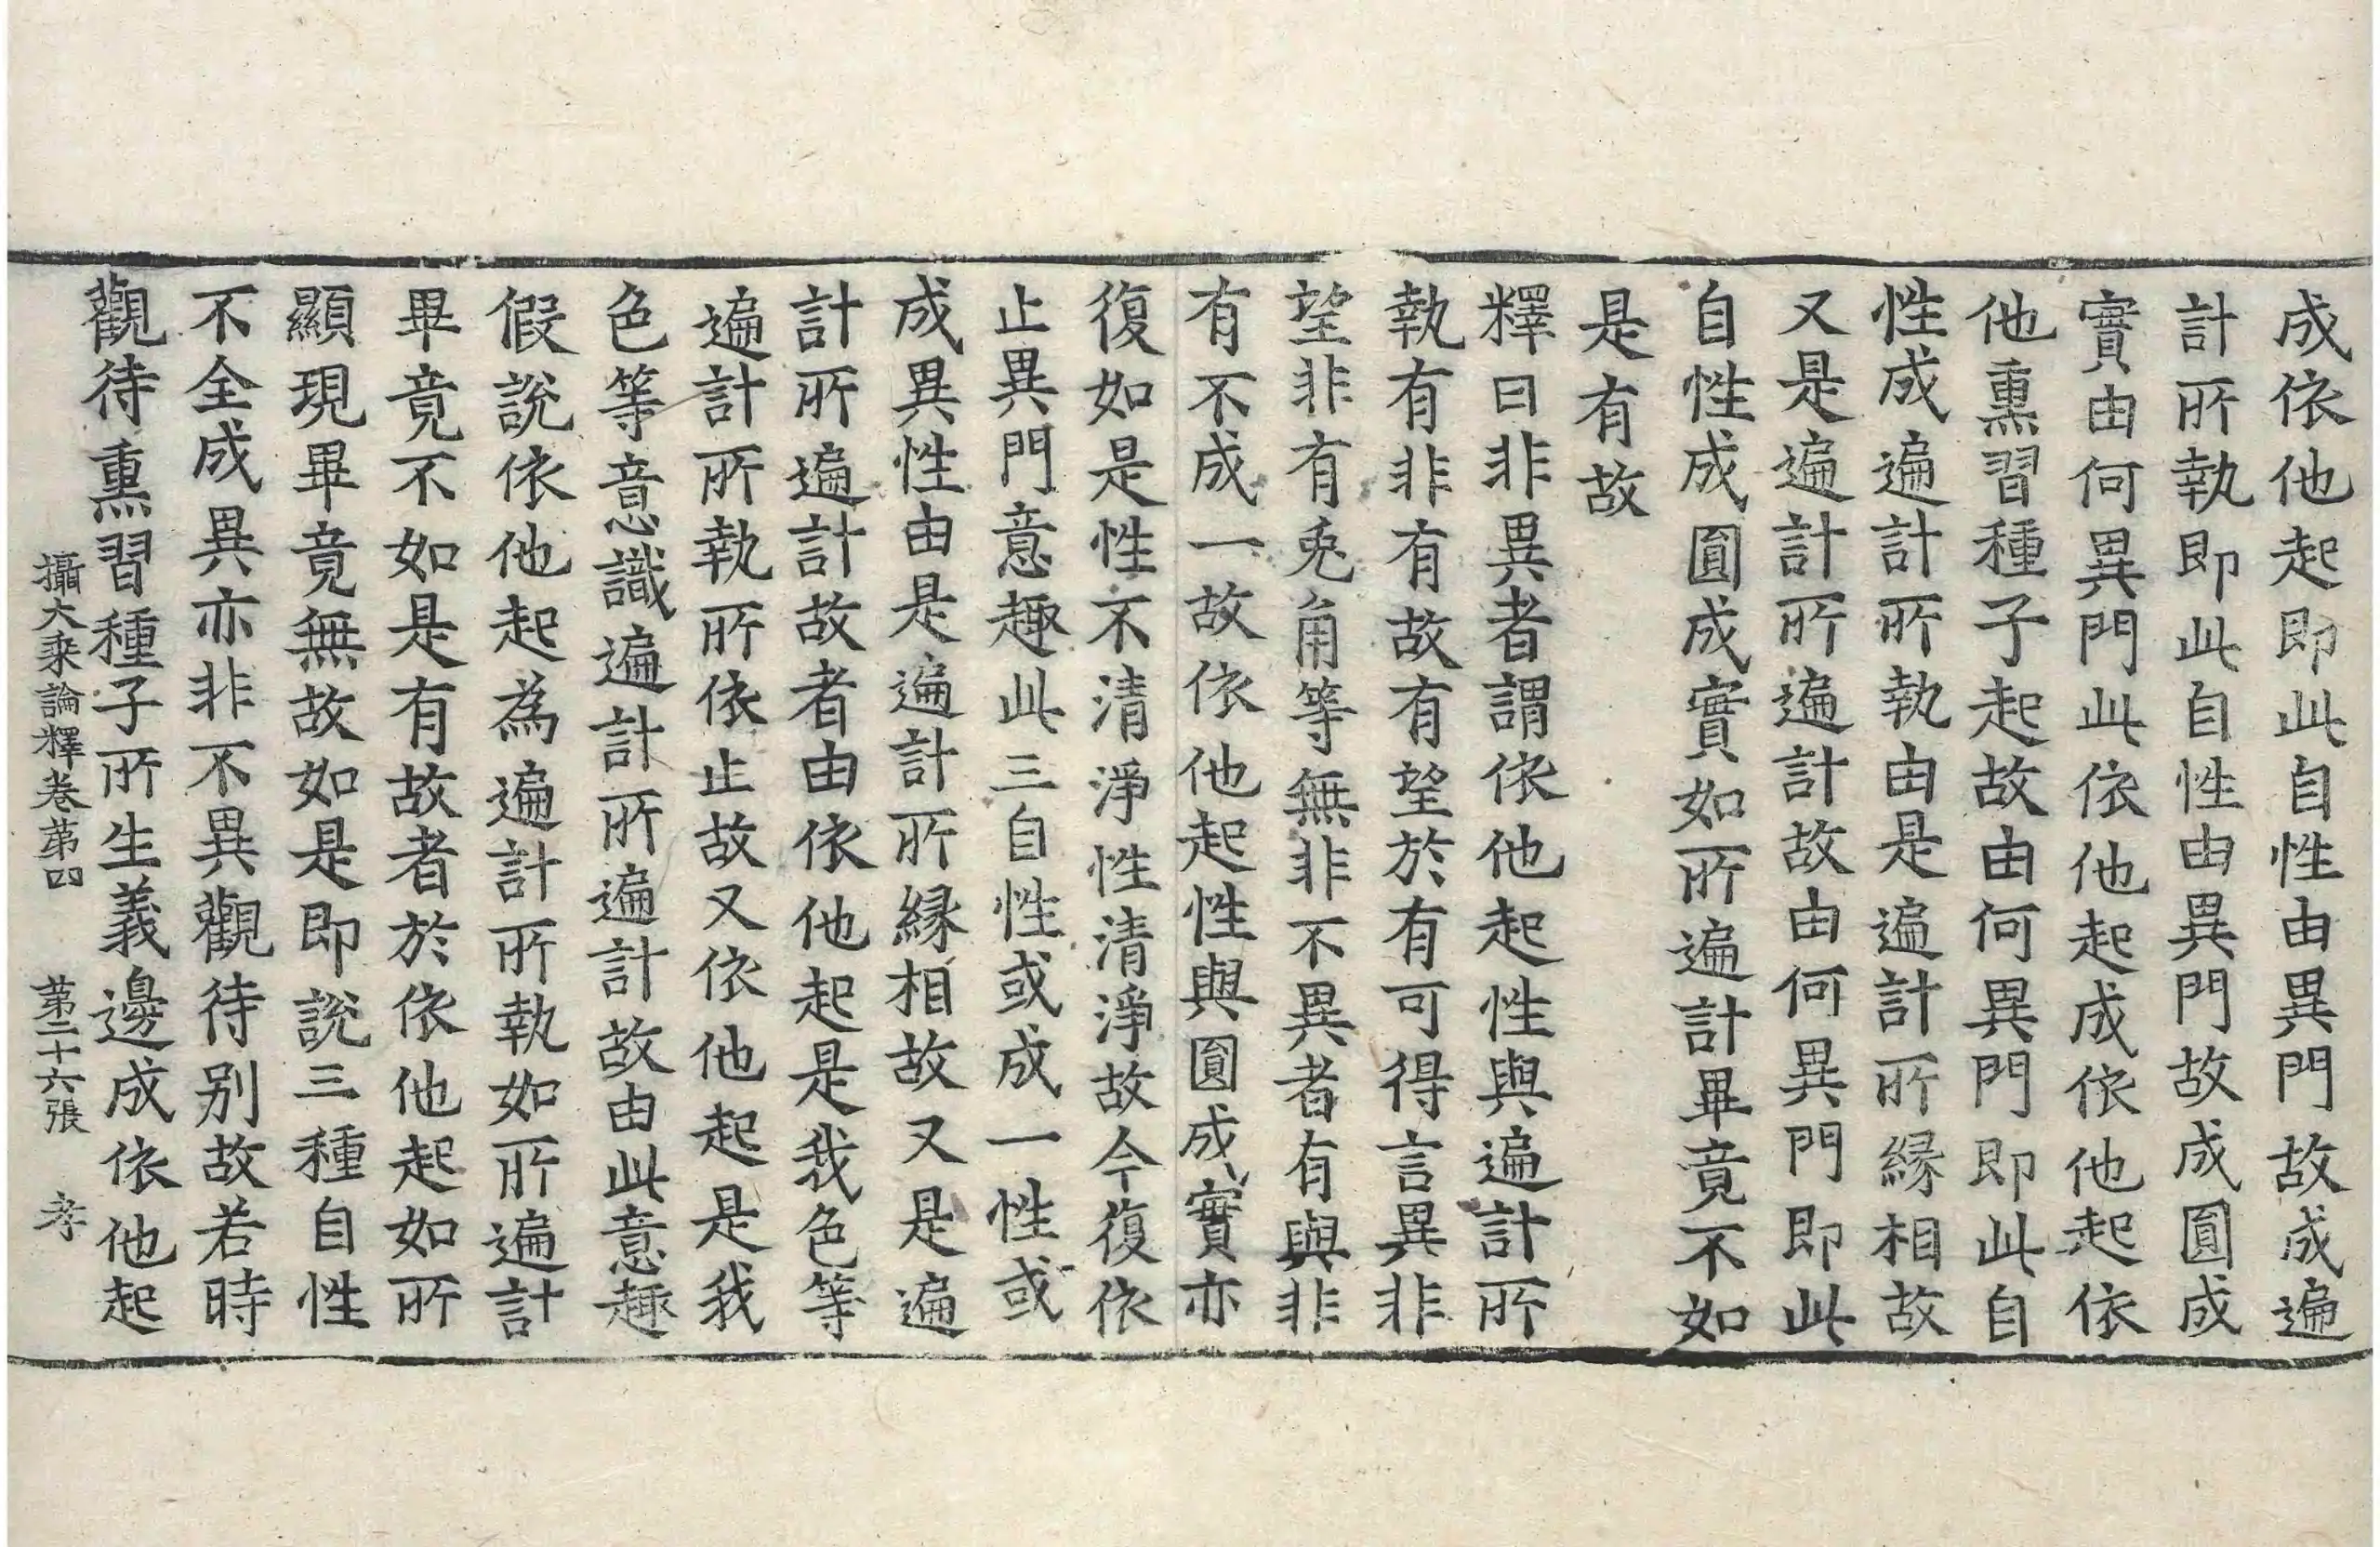 成依他起即此自性由異門故成遍
計所執即此自性由異門故成圓成
實由何異門此依他起成依他起依
他熏習種子起故由何異門即此自
性成遍計所執由是遍計所縁相故
又是遍計所遍計故由何異門即此
自性成圓成實如所遍計畢竟不如
是有故
釋曰非異者謂依他起性與遍計所
執有非有故有望於有可得言異非
望非有兎角等無非不異者有與非
有不成一故依他起性與圓成實亦
復如是性不清淨性清淨故今復依
止異門意趣此三自性或成一性或
成異性由是遍計所縁相故又是遍
計所遍計故者由依他起是我色等
遍計所執所依止故又依他起是我
色等意識遍計所遍計故由此意趣
假説依他起為遍計所執如所遍計
畢竟不如是有故者於依他起如所
顯現畢竟無故如是即說三種自性
不全成異亦非不異觀待别故若時
觀待熏習種子所生義邊成依他起
攝大乘論釋卷第四　第二十六張　孝